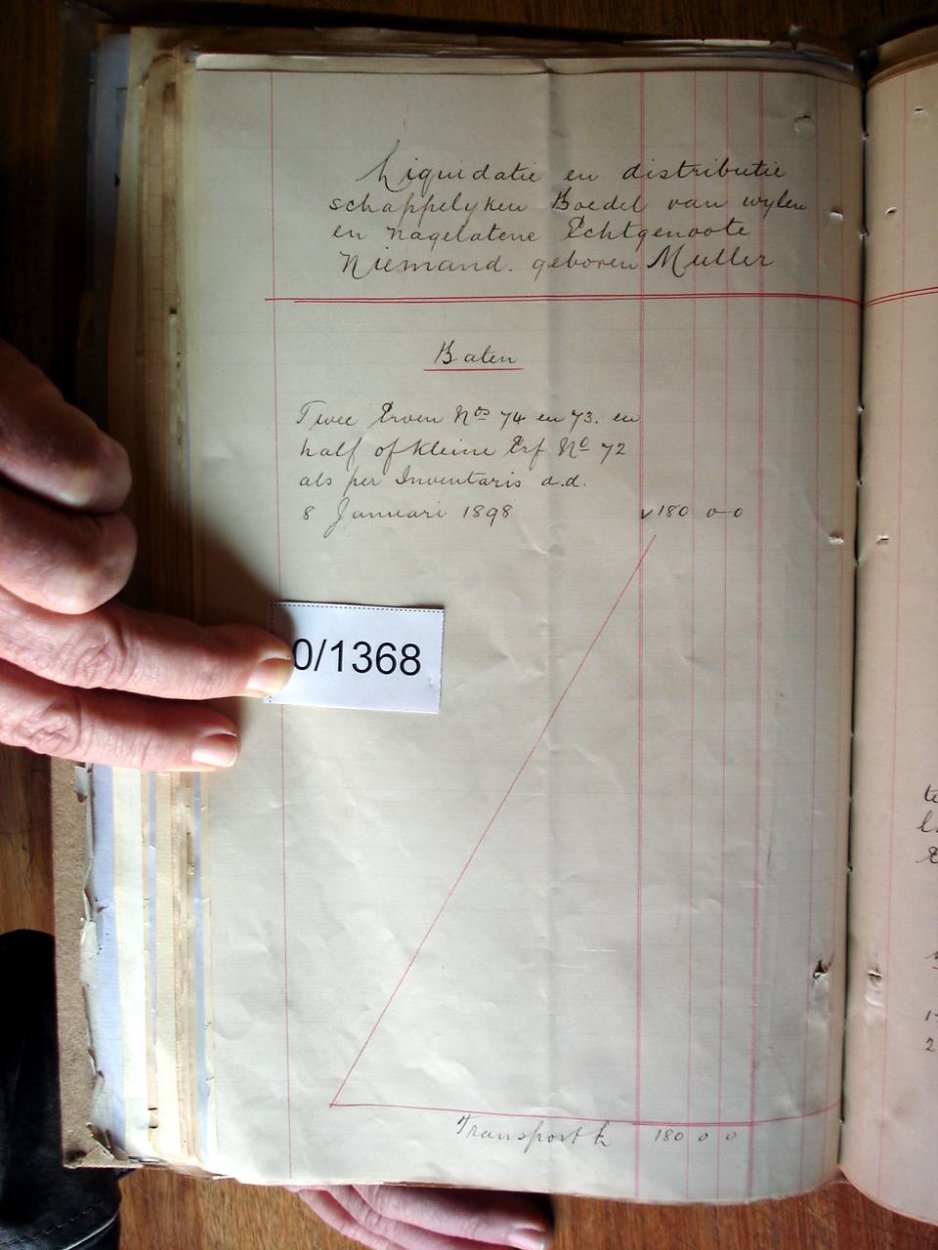 Liquidatie en distributie
schappelyken Boedel van wylen
en nagelatene Echtgenoote
Niemand. geboren Muller
Baten
Twee Erven Nos 74 en 73. en
half of kleine Erf No 72
als per Inventaris d.d.
8 Januari 1898 180 0-0
0/1368
Transport 180 0 0